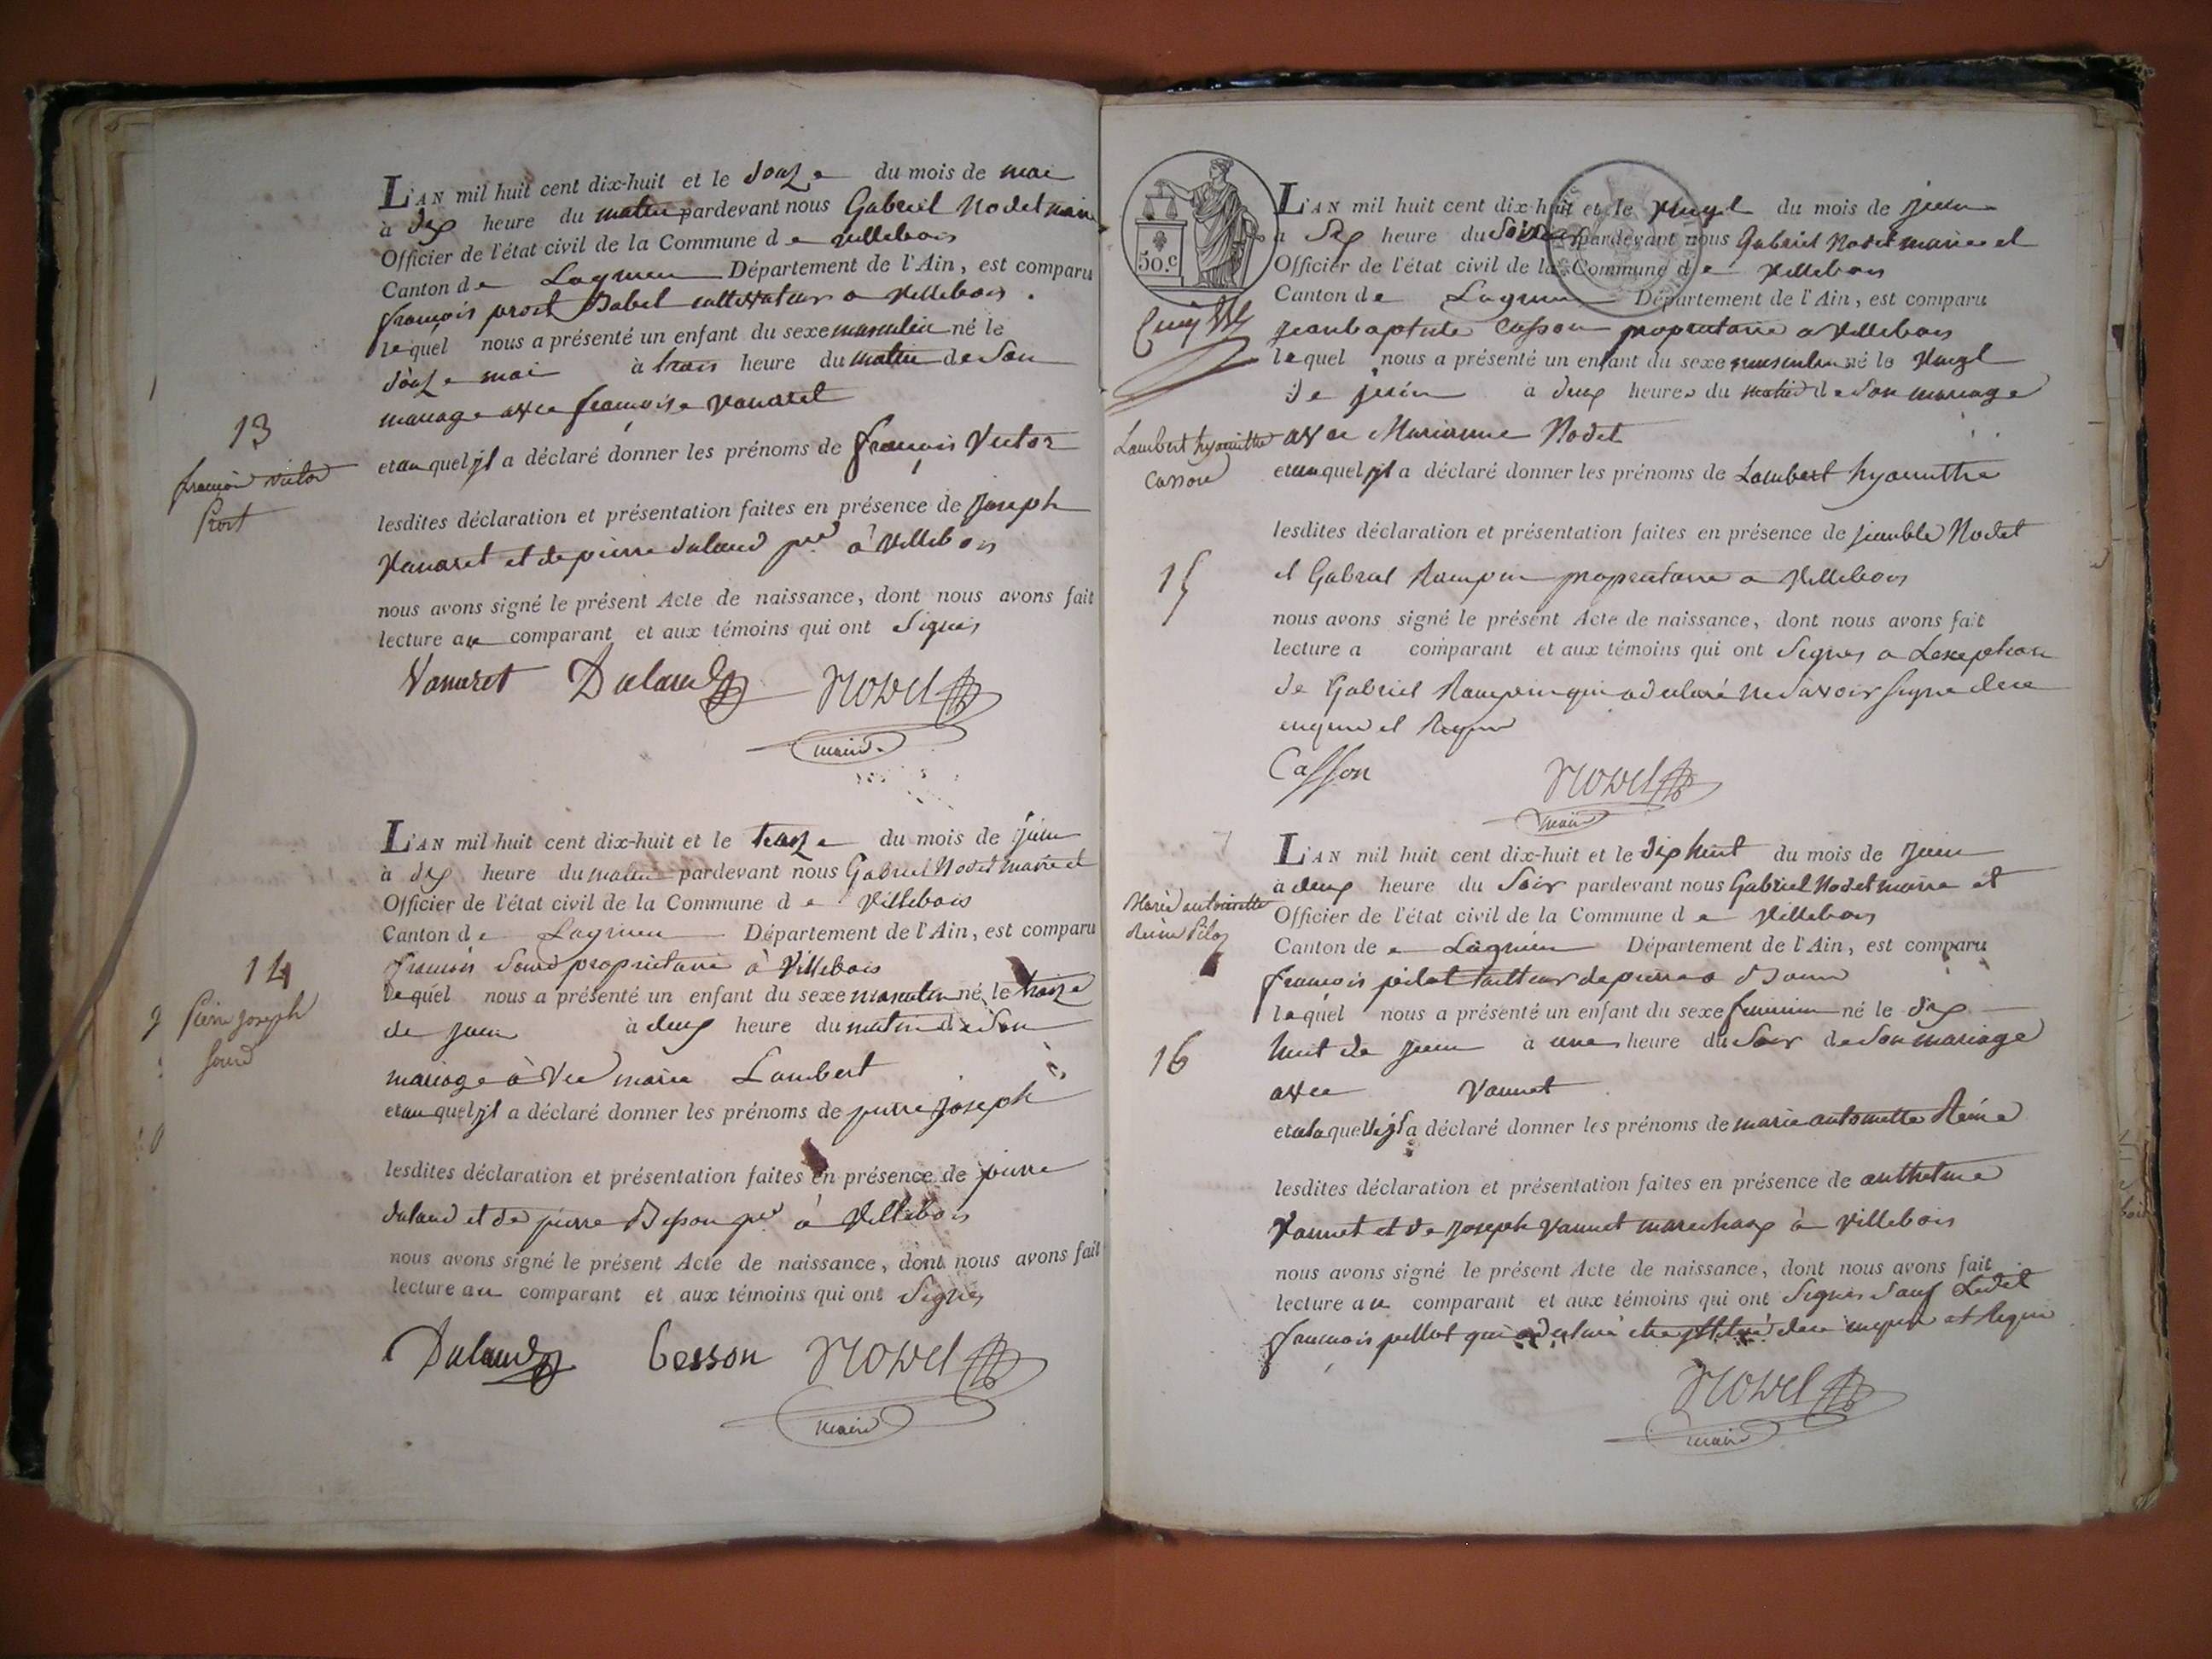 L'AN mil huit cent dix-huit et le douze du mois de mai
à dix heure du matin pardevant nous Gabriel Nodet maire
Officier de l'état civil de la Commune de villebois
Canton de Lagnieu Département de l'Ain, est comparu
françois prost Babel cultivateur a villebois.
lequel nous a présenté un enfant du sexe masculin né le
douze mai à trois heure du matin de son
mariage avec françoise vanaret
et auquel jl a déclaré donner les prénoms de françois Victor
13
françois victor
Prost
lesdites déclaration et présentation faites en présence de joseph
Vanaret et de pierre dulaud pre à Villebois
nous avons signé le présent Acte de naissance, dont nous avons fait
lecture au comparant et aux témoins qui ont signés
Vanaret Dulaud NODET
maire
L'AN mil huit cent dix-huit et le treize du mois de juin
à dix heure du matin pardevant nous Gabriel Nodet maire et
Officier de l'état civil de la Commune de Villebois
Canton de Lagnieu Département de l'Ain, est comparu
françois sourd proprietaire à Villebois
lequel nous a présenté un enfant du sexe masculin né le treize
de juin à deux heure du matin de son
mariage à vec marie Lambert
et auquel jl a déclaré donner les prénoms de pierre joseph
14
Pierre joseph
sourd
lesdites déclaration et présentation faites en présence de pierre
dulaud et de pierre Besson pre à Villebois
nous avons signé le présent Acte de naissance, dont nous avons fait
lecture au comparant et aux témoins qui ont signés
Dulaud besson NODET
maire
50.c
L'AN mil huit cent dix-huit et le vingt du mois de juin
a six heure du soir pardevant nous Gabriel Nodet maire et
Officier de l'état civil de la Commune de villebois
Canton de Lagnieu Département de l'Ain, est comparu
jeanbaptiste Casson proprietaire a villebois
lequel nous a présenté un enfant du sexe masculin né le vingt
de juin à deux heures du matin de son mariage
avec Marianne Nodet
et auquel jl a déclaré donner les prénoms de Lambert hyacinthe
Lambert hyacinthe
Casson
lesdites déclaration et présentation faites en présence de Nodet
15
et Gabriel proprietaire a villebois
nous avons signé le présent Acte de naissance, dont nous avons fait
lecture a comparant et aux témoins qui ont signés a Lexeption
de Gabriel qui a declaré ne savoir signe dece
enquie et Requi
Casson NODET
maire
L'AN mil huit cent dix-huit et le dix huit du mois de juin
à deux heure du soir pardevant nous Gabriel Nodet maire et
Officier de l'état civil de la Commune de villebois
Canton de Lagnieu Département de l'Ain, est comparu
françois pilot tailleur de pierre a
lequel nous a présenté un enfant du sexe feminin né le dix
huit de juin à une heure du soir de son mariage
avec Vannet
et alaquelle jl a déclaré donner les prénoms de marie antoinette Reine
Marie antoinette
Reine Pilot
16
lesdites déclaration et présentation faites en présence de anthelme
Vannet et de joseph Vannet marechaux à villebois
nous avons signé le présent Acte de naissance, dont nous avons fait
lecture au comparant et aux témoins qui ont signés sauf Ledit
françois pillot qui a declaré dece enquie et Requi
NODET
maire